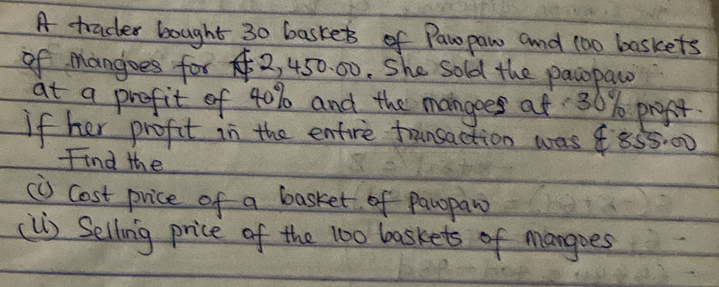 A trader bought 30 baskets of Pawpaw and 100 baskets
of mangoes for ₵2,450.00. She sold the pawpaw
at a profit of 40% and the mangoes at 30% profit.
if her profit in the entire transaction was ₵855.00
Find the
(i) Cost price of a basket of pawpaw
(ii) Selling price of the 100 baskets of mangoes